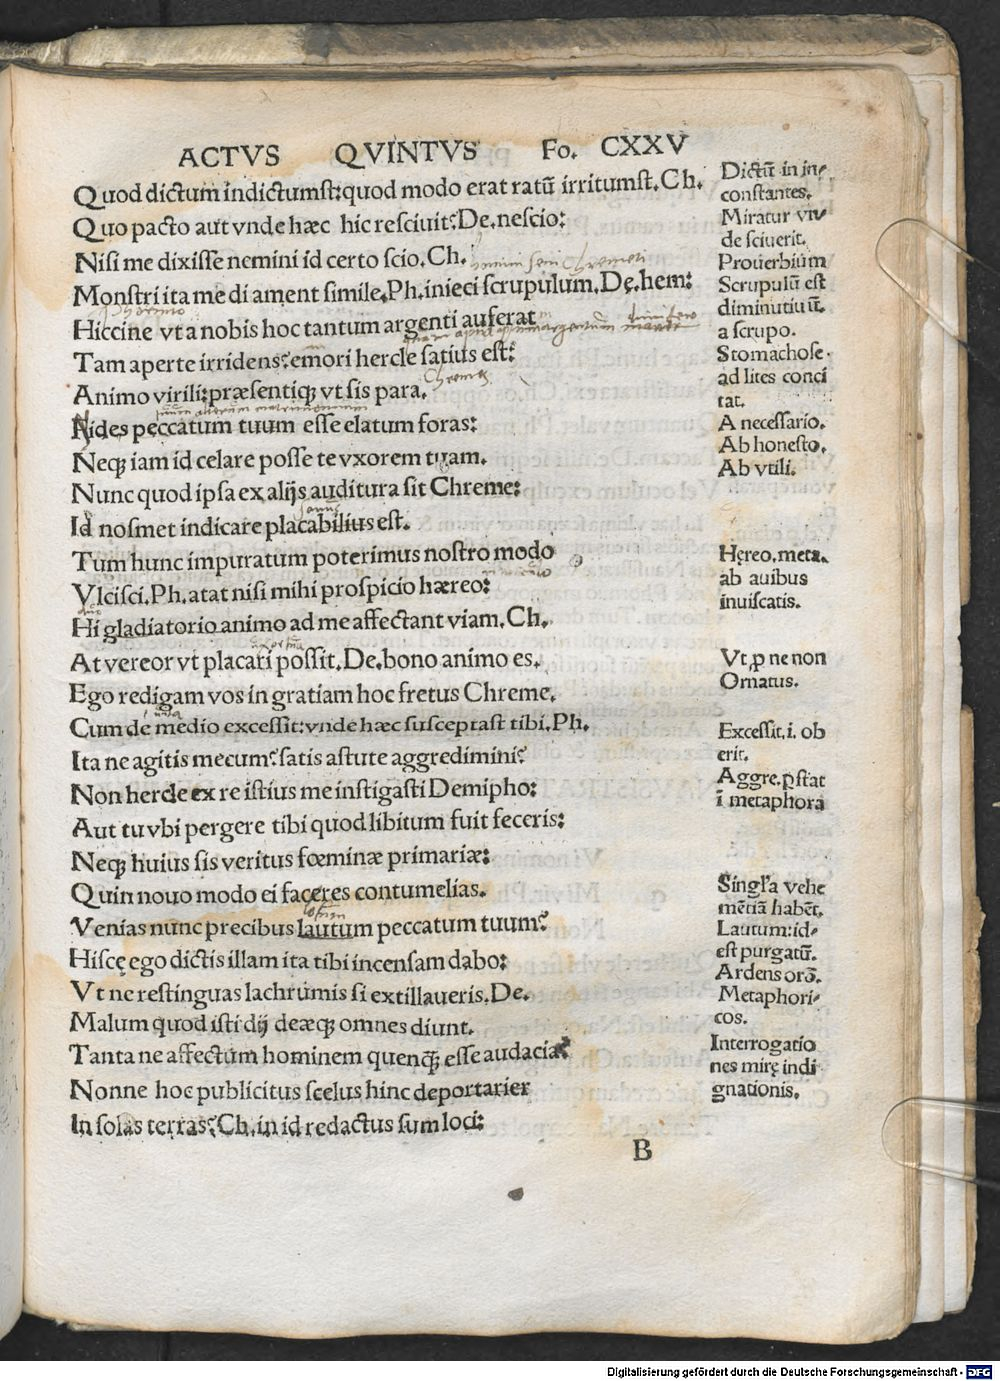 ACTVS QVINTVS Fo. CXXV
Quod dictum indictumst:quod modo erat ratū irritumst.Ch.
Quo pacto aut vnde hæc hic resciuit?De.nescio:
Nisi me dixisse nemini id certo scio.Ch.
Monstri ita me di ament simile.Ph.inieci scrupulum.De.hem:
Hiccine vt a nobis hoc tantum argenti auferat
Tam aperte irridens?emori hercle satius est:
Animo virili:præsentiq; vt sis para.
Vides peccatum tuum esse elatum foras:
Neq; iam id celare posse te vxorem tuam.
Nunc quod ipsa ex alijs auditura sit Chreme:
Id nosmet indicare placabilius est.
Tum hunc impuratum poterimus nostro modo
Vlcisci.Ph.atat nisi mihi prospicio hæreo:
Hi gladiatorio animo ad me affectant viam.Ch.
At vereor vt placari possit.De.bono animo es.
Ego redigam vos in gratiam hoc fretus Chreme.
Cum de medio excessit:vnde hæc susceptast tibi.Ph.
Ita ne agitis mecum?satis astute aggredimini?
Non hercle ex re istius me instigasti Demipho:
Aut tu vbi pergere tibi quod libitum fuit feceris:
Neq; huius sis veritus fœminæ primariæ:
Quin nouo modo ei faceres contumelias.
Venias nunc precibus lautum peccatum tuum?
Hiscę ego dictis illam ita tibi incensam dabo:
Vt ne restinguas lachrumis si extillaueris.De.
Malum quod isti dij deæq; omnes diunt.
Tanta ne affectum hominem quenq; esse audacia
Nonne hoc publicitus scelus hinc deportarier
In solas terras?Ch.in id redactus sum loci:
B
Dictū in in-
constantes.
Miratur vn/
de sciuerit.
Prouerbium
Scrupulū est
diminutiuū.
a scrupo.
Stomachose.
ad lites conci
tat.
A necessario.
Ab honesto.
Ab vtili.
Hęreo.meta.
ab auibus
inuiscatis.
Vt.p ne non
Ornatus.
Excessit.i.ob
erit.
Aggre.pstat
ī metaphora
Singl'a vehe
mētiā habēt.
Lautum:id-
est purgatū.
Ardens orō.
Metaphori-
cos.
Interrogatio
nes mirę indi
gnationis.
Digitalisierung gefördert durch die Deutsche Forschungsgemeinschaft - DFG